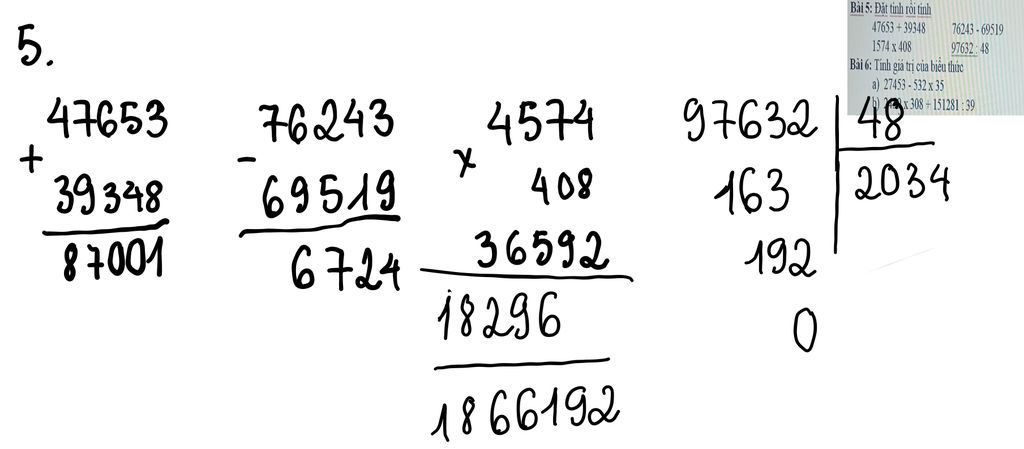 Bài 5: Đặt tính rồi tính
47653 + 39348 76243 - 69519
1574 x 408 97632 : 48
Bài 6: Tính giá trị của biểu thức
a) 27453 - 532 x 35
b) x 308 + 151281 : 39
5.
47653
+
39348
87001
76243
-
69519
6724
4574
x
408
36592
18296
1866192
97632 48
163 2034
192
0